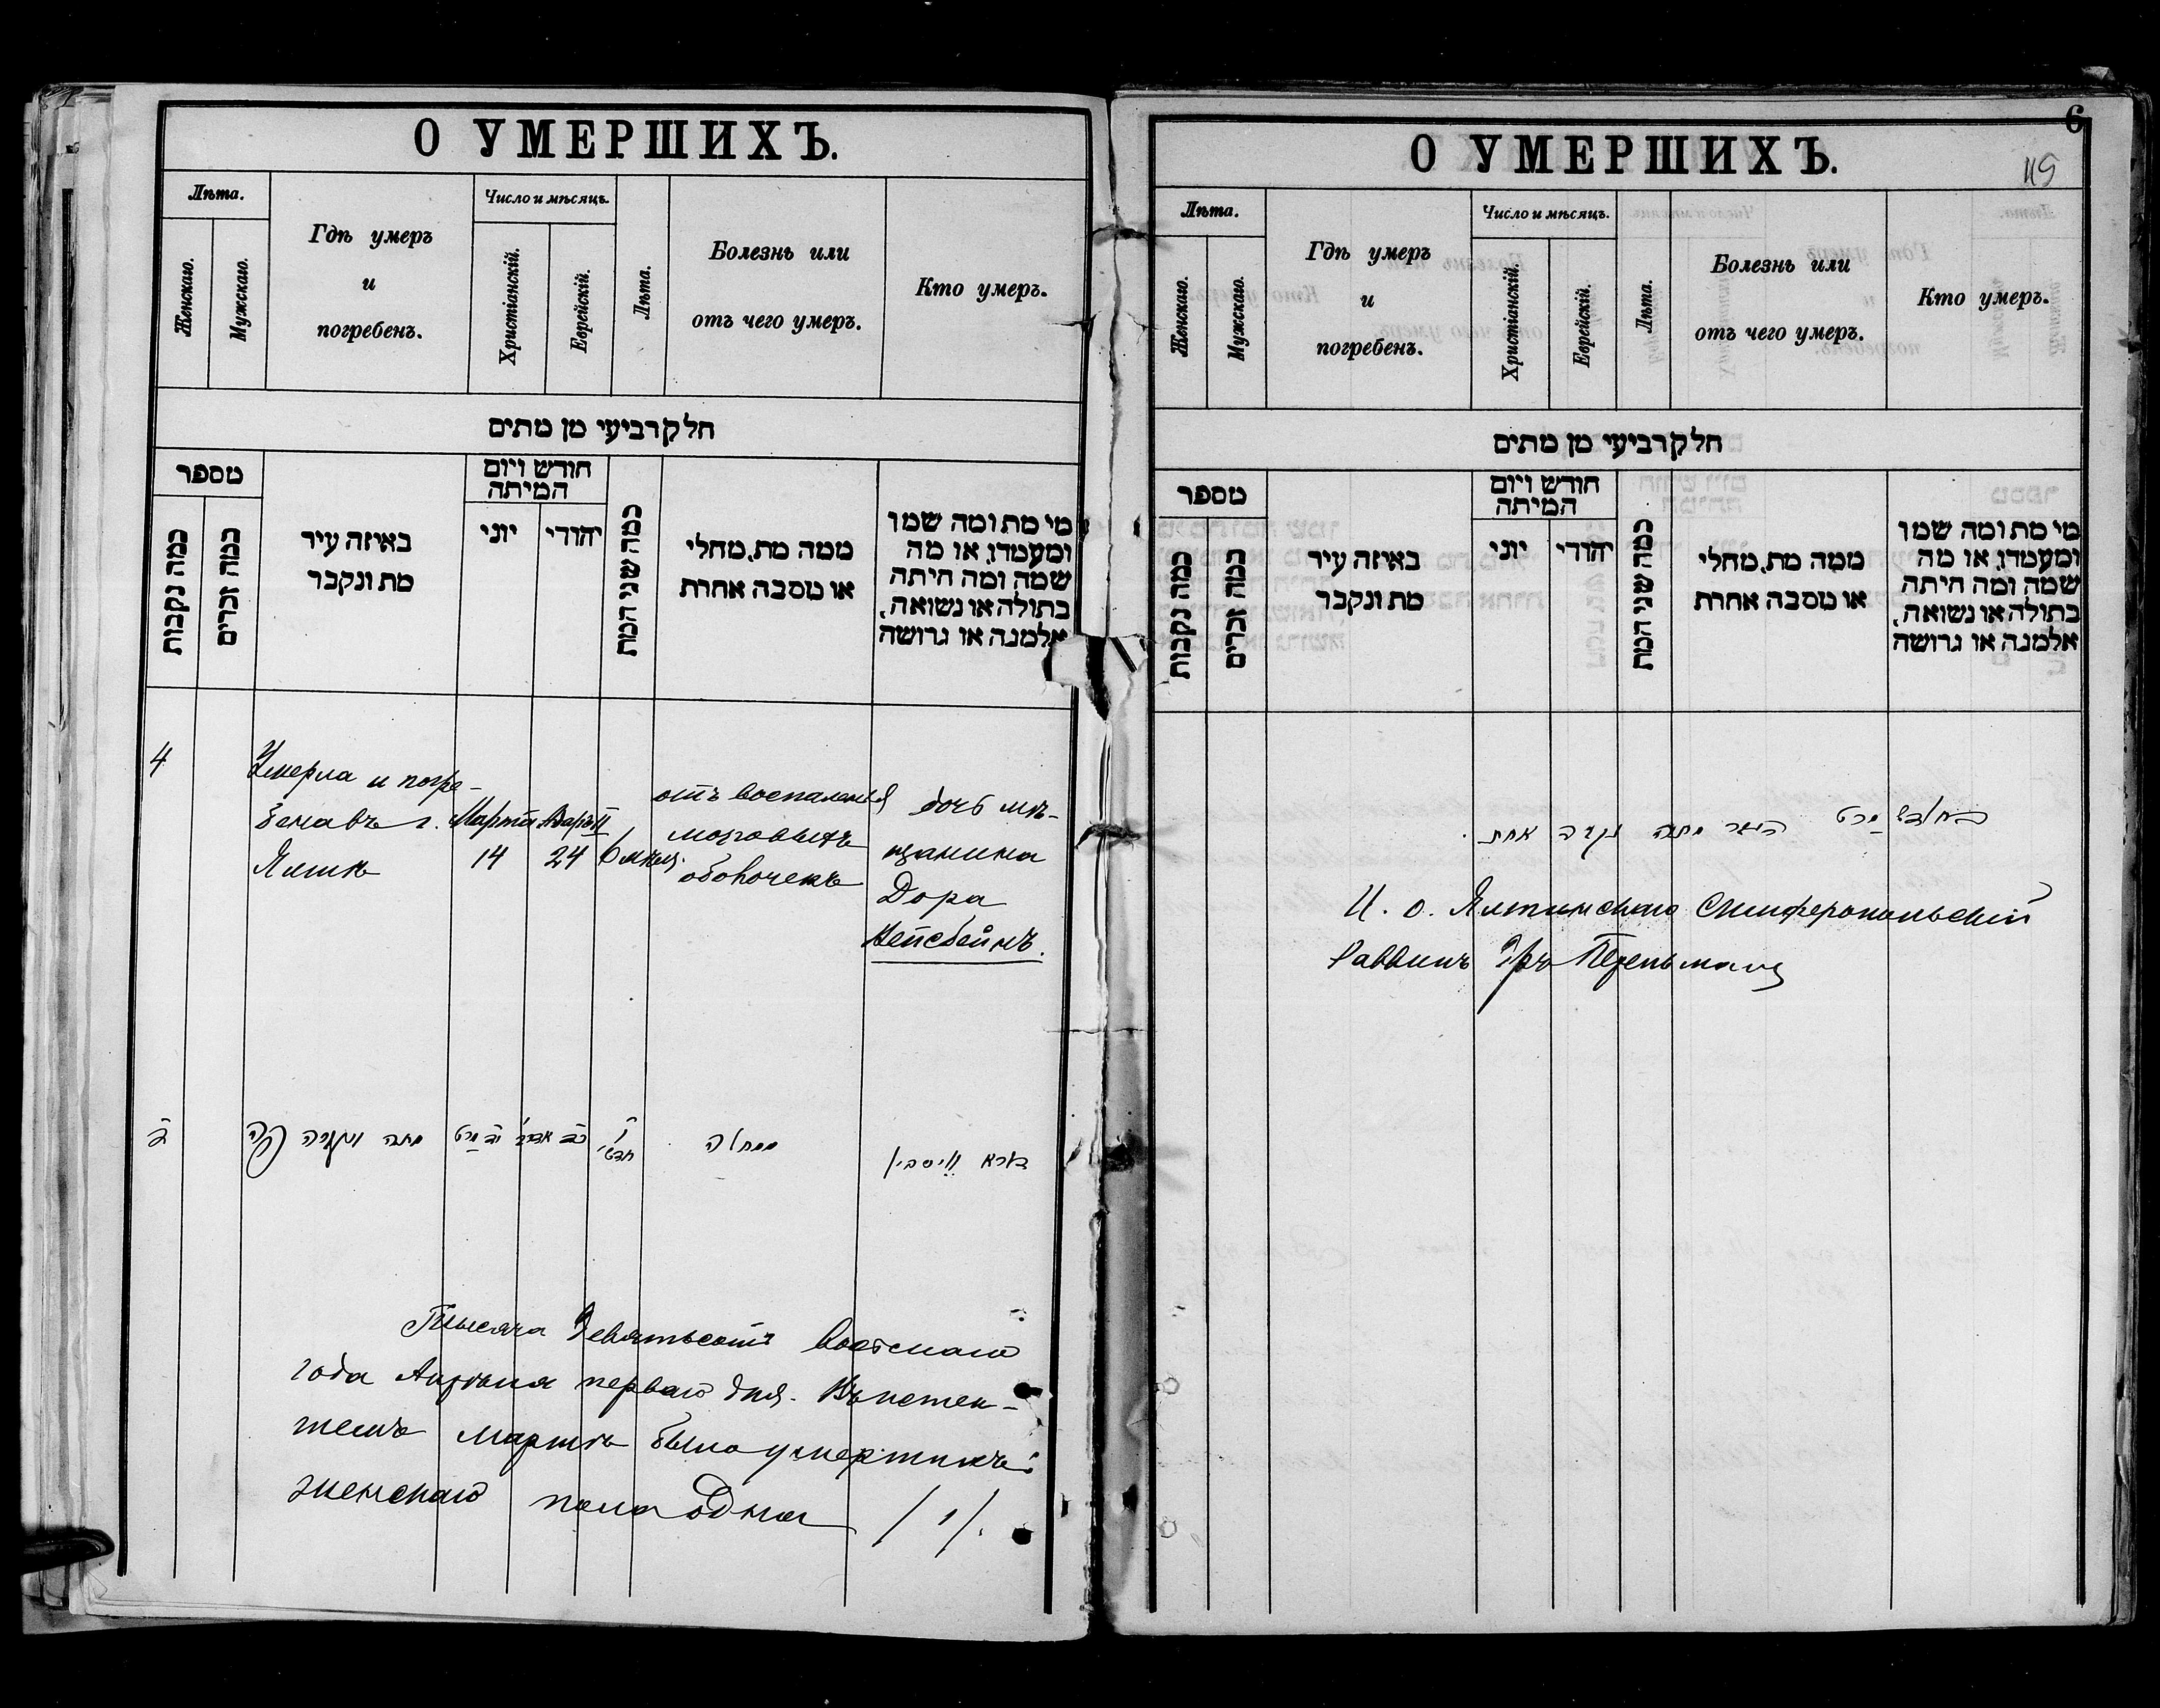 О УМЕРШИХЪ.
Лѣта.
Женскаго.
Мужскаго.
Гдѣ умеръ
и
погребенъ.
Число и мѣсяцъ.
Христіанскій.
Еврейскій.
Лѣта.
Болезнь или
отъ чего умеръ.
Кто умеръ.
חלק רביעי מן מתים
מספר
כמה נקבות
כמה זכרים
באיזה עיר
מת ונקבר
חודש ויום
המיתה
יוני
יהודי
כמה שני המת
ממה מת, מחלי
או מסבה אחרת
מי מת ומה שמו
ומעמדו, או מה
שמה ומה היתה
בתולה או נשואה,
אלמנה או גרושה
4
Умерла и погре-
бена въ г.
Ялтѣ
Марта
14
Адаръ II
24
6 мѣсяц.
отъ воспаленія
мозговыхъ
оболочекъ
дочь мѣ-
щанина
Дора
Вейсбейнъ.
ד
מתה ונקברה פה
יד מרט
כד אדר ב׳
ו׳
חדשי׳
ממחלה
דארא ווייסביין
Тысяча девятьсотъ восьмаго
года Апрѣля перваго дня. Въ истек-
шемъ Мартѣ было умершихъ:
женскаго пола одна /1/.
О УМЕРШИХЪ.
6
115
Лѣта.
Женскаго.
Мужскаго.
Гдѣ умеръ
и
погребенъ.
Число и мѣсяцъ.
Христіанскій.
Еврейскій.
Лѣта.
Болезнь или
отъ чего умеръ.
Кто умеръ.
חלק רביעי מן מתים
מספר
כמה נקבות
כמה זכרים
באיזה עיר
מת ונקבר
חודש ויום
המיתה
יוני
יהודי
כמה שני המת
ממה מת, מחלי
או מסבה אחרת
מי מת ומה שמו
ומעמדו, או מה
שמה ומה היתה
בתולה או נשואה,
אלמנה או גרושה
בחודש מרט העבר מתה נקבה אחת.
И. о. Ялтинскаго Симферопольскій
Раввинъ